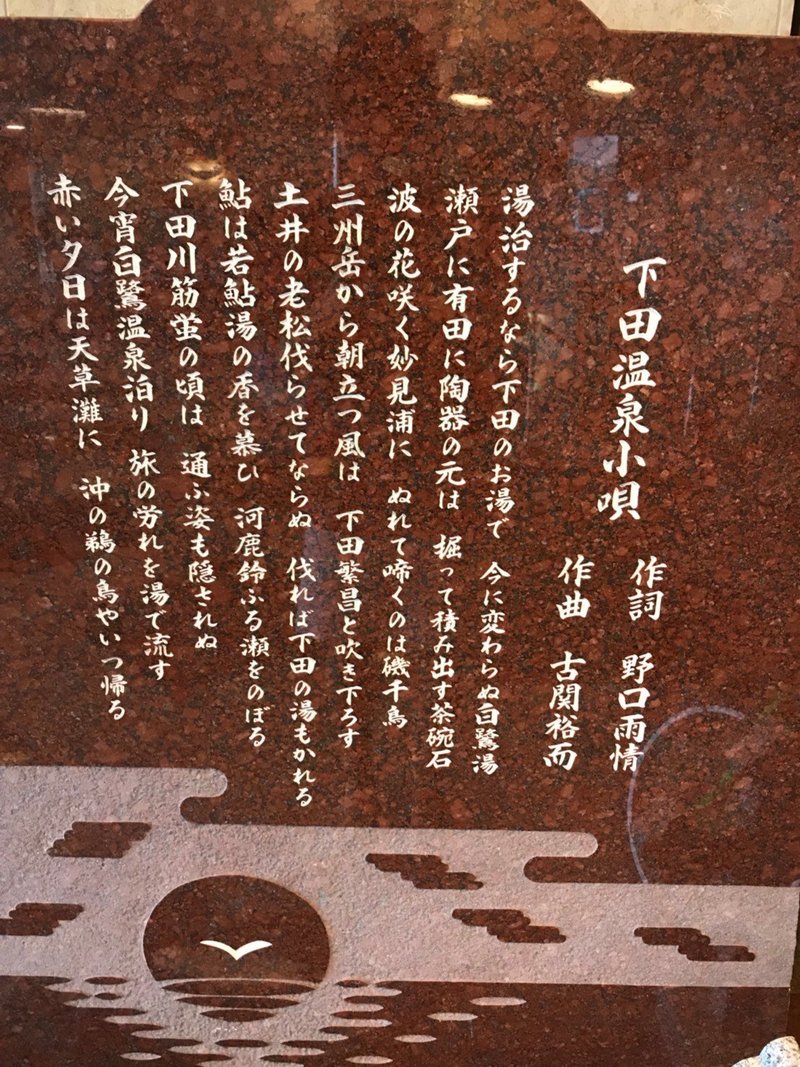 下田温泉小唄
作詞 野口雨情
作曲 古関裕而
湯治するなら下田のお湯で 今に変わらぬ白鷺湯
瀬戸に有田に陶器の元は 掘って積み出す茶碗石
波の花咲く妙見浦に ぬれて啼くのは磯千鳥
三州岳から朝立つ風は 下田繁昌と吹き下ろす
土井の老松伐らせてならぬ 伐れば下田の湯もかれる
鮎は若鮎湯の香を慕ひ 河鹿鈴ふる瀬をのぼる
下田川筋蛍の頃は 通ふ姿も隠されぬ
今宵白鷺温泉泊り 旅の労れを湯で流す
赤い夕日は天草灘に 沖の鵜の鳥やいつ帰る